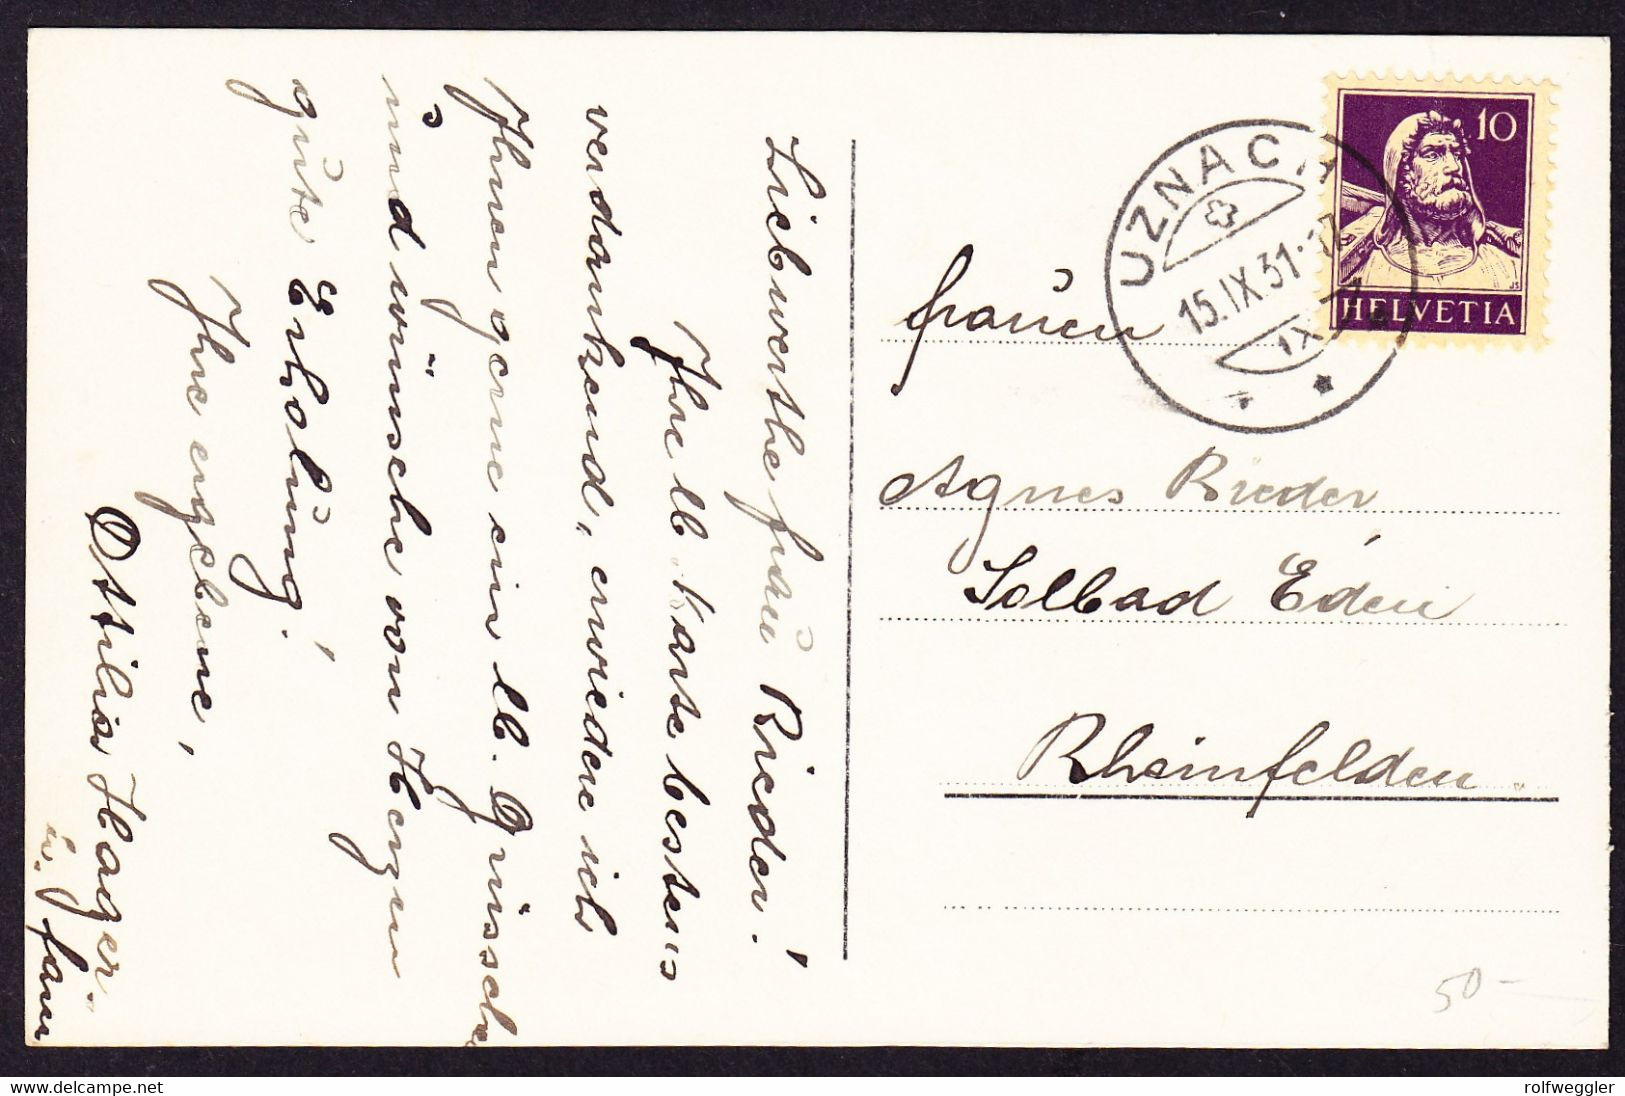 Liebwerthe frau Rieder!
Ihre lb. Karte bestens
verdankend, erwiedere ich
Ihnen gerne ein lb. Grüssche
und wünsche von Herzen
gute Erholung!
Ihre ergebene,
Ottilia Hager.
u. fam
UZNACH
15.IX.31
10
HELVETIA
frauen
Agnes Rieder
Solbad Eden
Rheinfelden.
50-
delcampe.net
rolfweggler